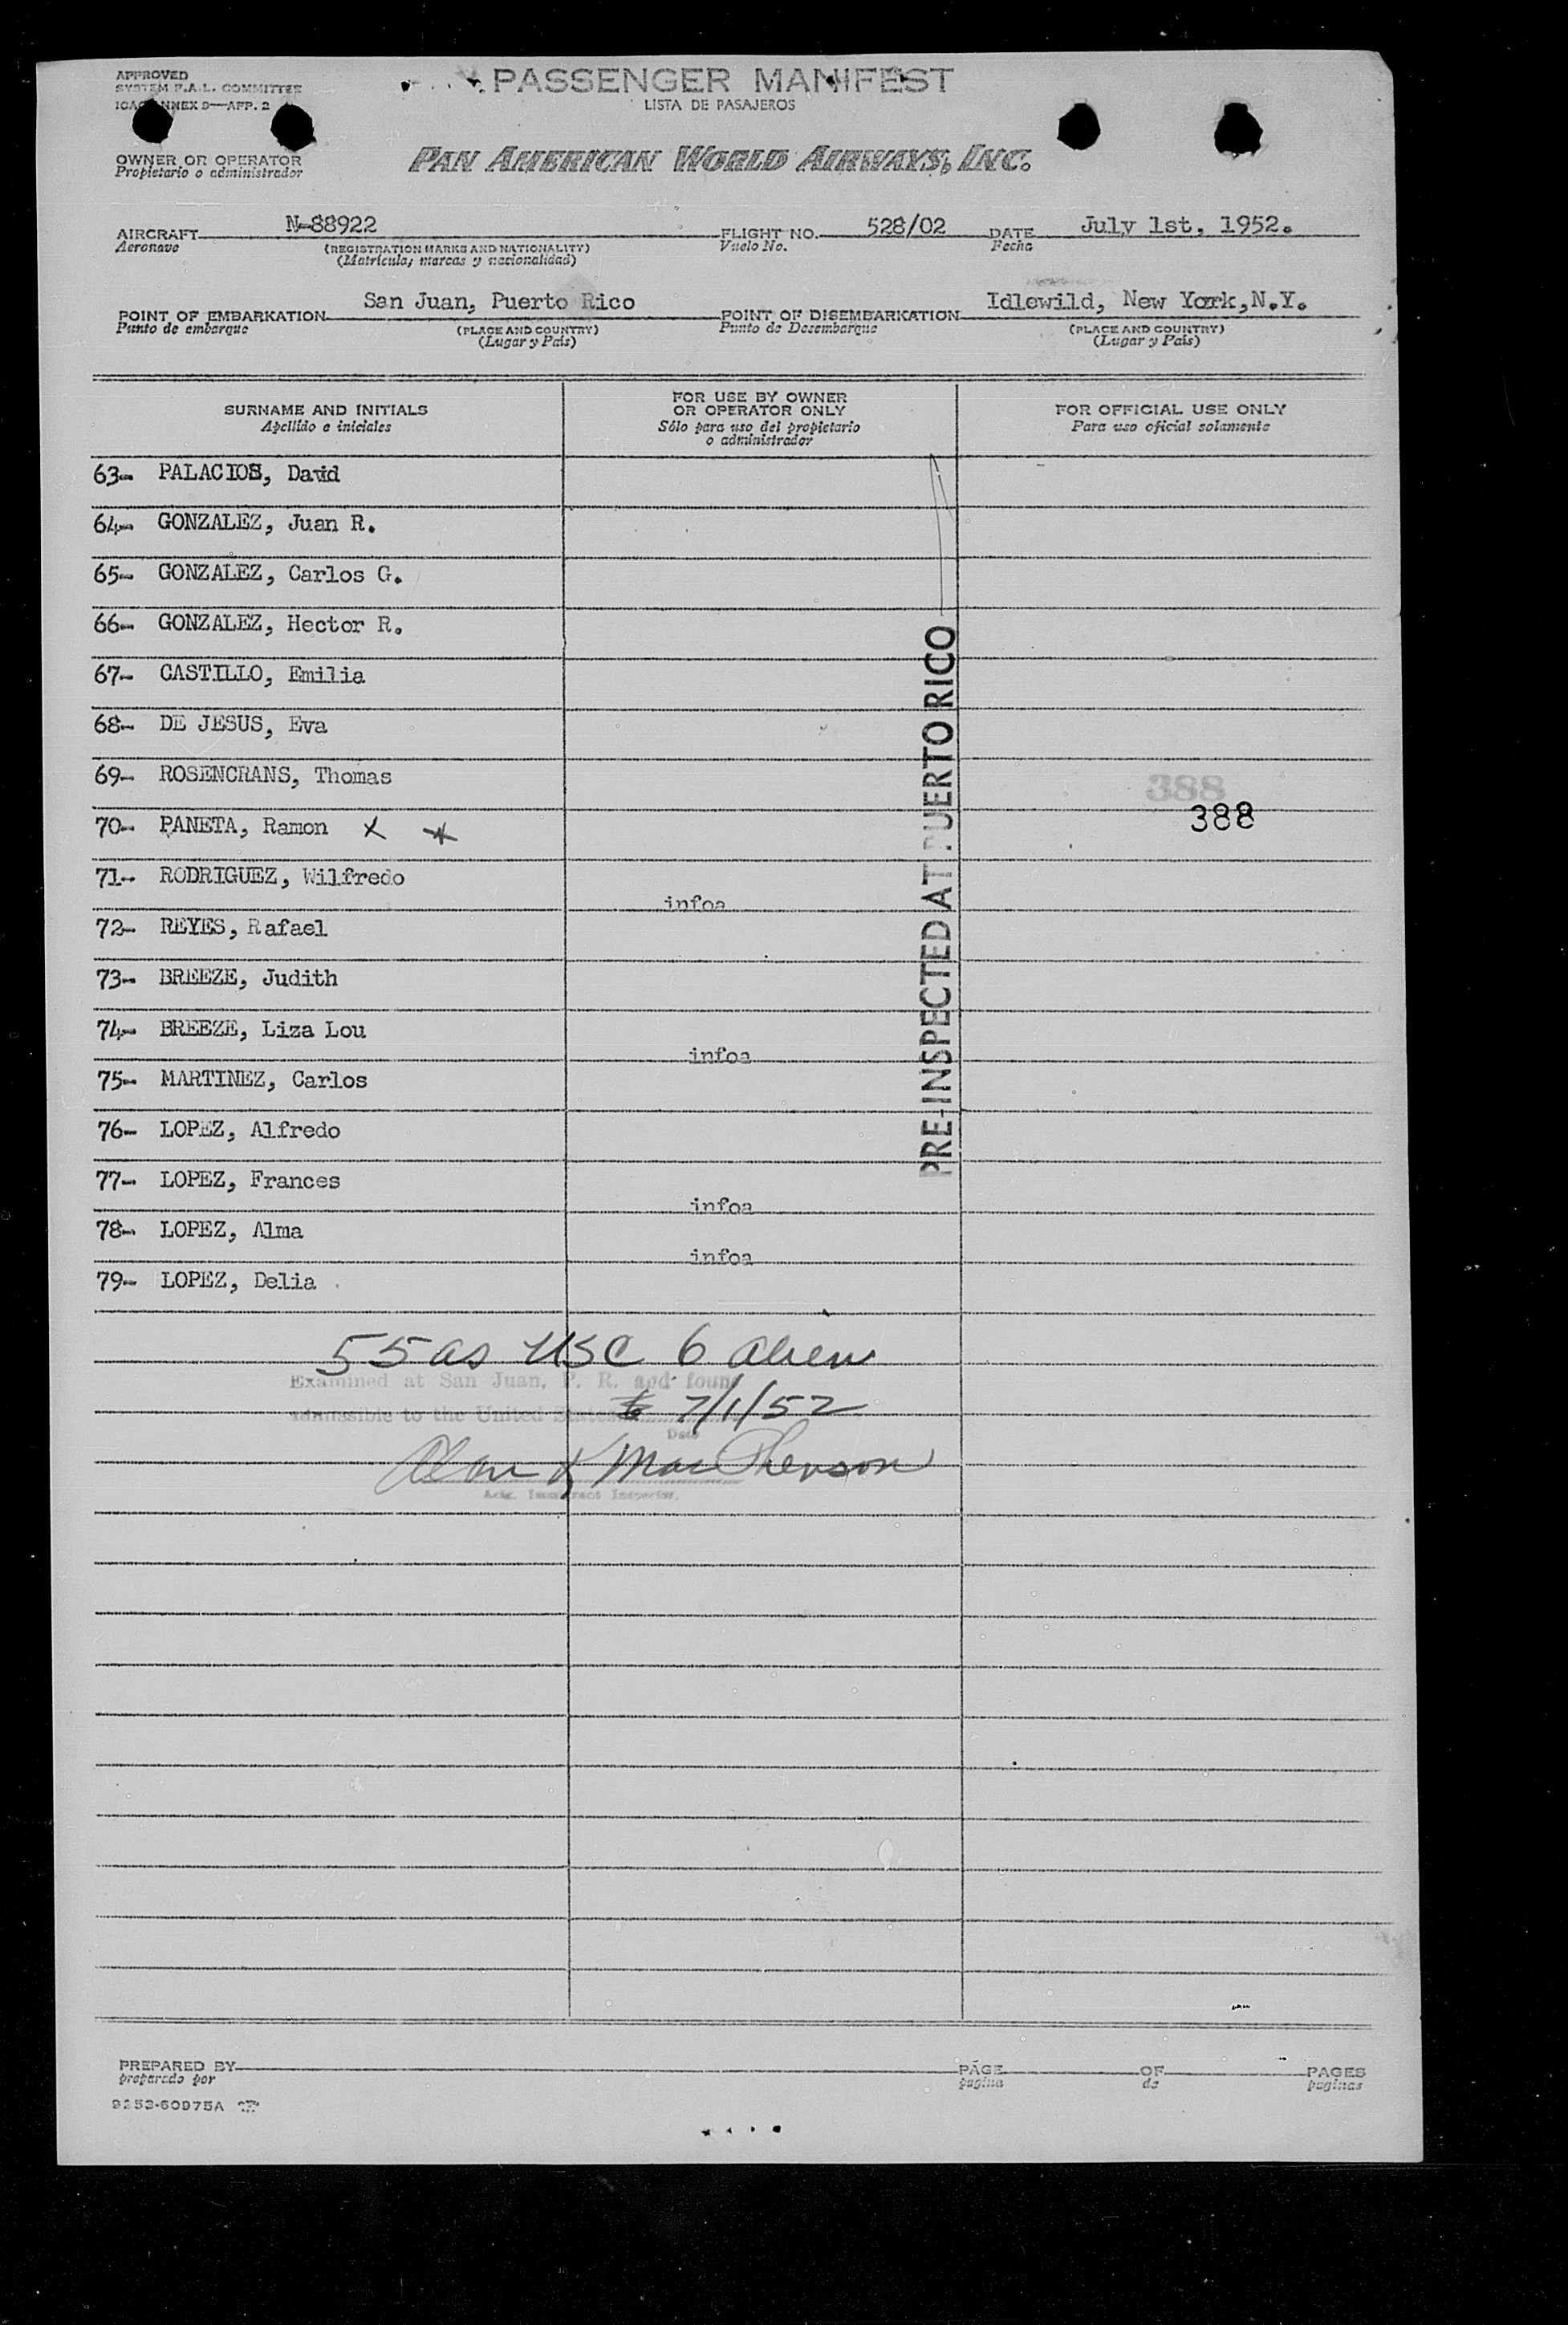 APPROVED
SYSTEM F.A.L. COMMITTEE
ICAO ANNEX 9—APP. 2
PASSENGER MANIFEST
LISTA DE PASAJEROS
OWNER OR OPERATOR
Propietario o administrador
PAN AMERICAN WORLD AIRWAYS, INC.
AIRCRAFT N-88922 FLIGHT NO. 528/02 DATE July 1st, 1952.
Aeronave (REGISTRATION MARKS AND NATIONALITY) Vuelo No. Fecha
(Matrícula, marcas y nacionalidad)
POINT OF EMBARKATION San Juan, Puerto Rico POINT OF DISEMBARKATION Idlewild, New York, N.Y.
Punto de embarque (PLACE AND COUNTRY) Punto de Desembarque (PLACE AND COUNTRY)
(Lugar y País) (Lugar y País)
SURNAME AND INITIALS
Apellido e iniciales
FOR USE BY OWNER
OR OPERATOR ONLY
Sólo para uso del propietario
o administrador
FOR OFFICIAL USE ONLY
Para uso oficial solamente
63- PALACIOS, David
64- GONZALEZ, Juan R.
65- GONZALEZ, Carlos G.
66- GONZALEZ, Hector R.
67- CASTILLO, Emilia
68- DE JESUS, Eva
69- ROSENCRANS, Thomas 388
70- PANETA, Ramon X X 388
71- RODRIGUEZ, Wilfredo
infoa
72- REYES, Rafael
73- BREEZE, Judith
74- BREEZE, Liza Lou
infoa
75- MARTINEZ, Carlos
76- LOPEZ, Alfredo
77- LOPEZ, Frances
infoa
78- LOPEZ, Alma
infoa
79- LOPEZ, Delia
PRE-INSPECTED AT PUERTO RICO
55 as USC 6 alien
Examined at San Juan, P. R. and found
admissible to the United States 7/1/52
Date
Alan K MacPherson
Immigrant Inspector.
PREPARED BY PAGE OF PAGES
preparado por pagina de paginas
9253-60975A